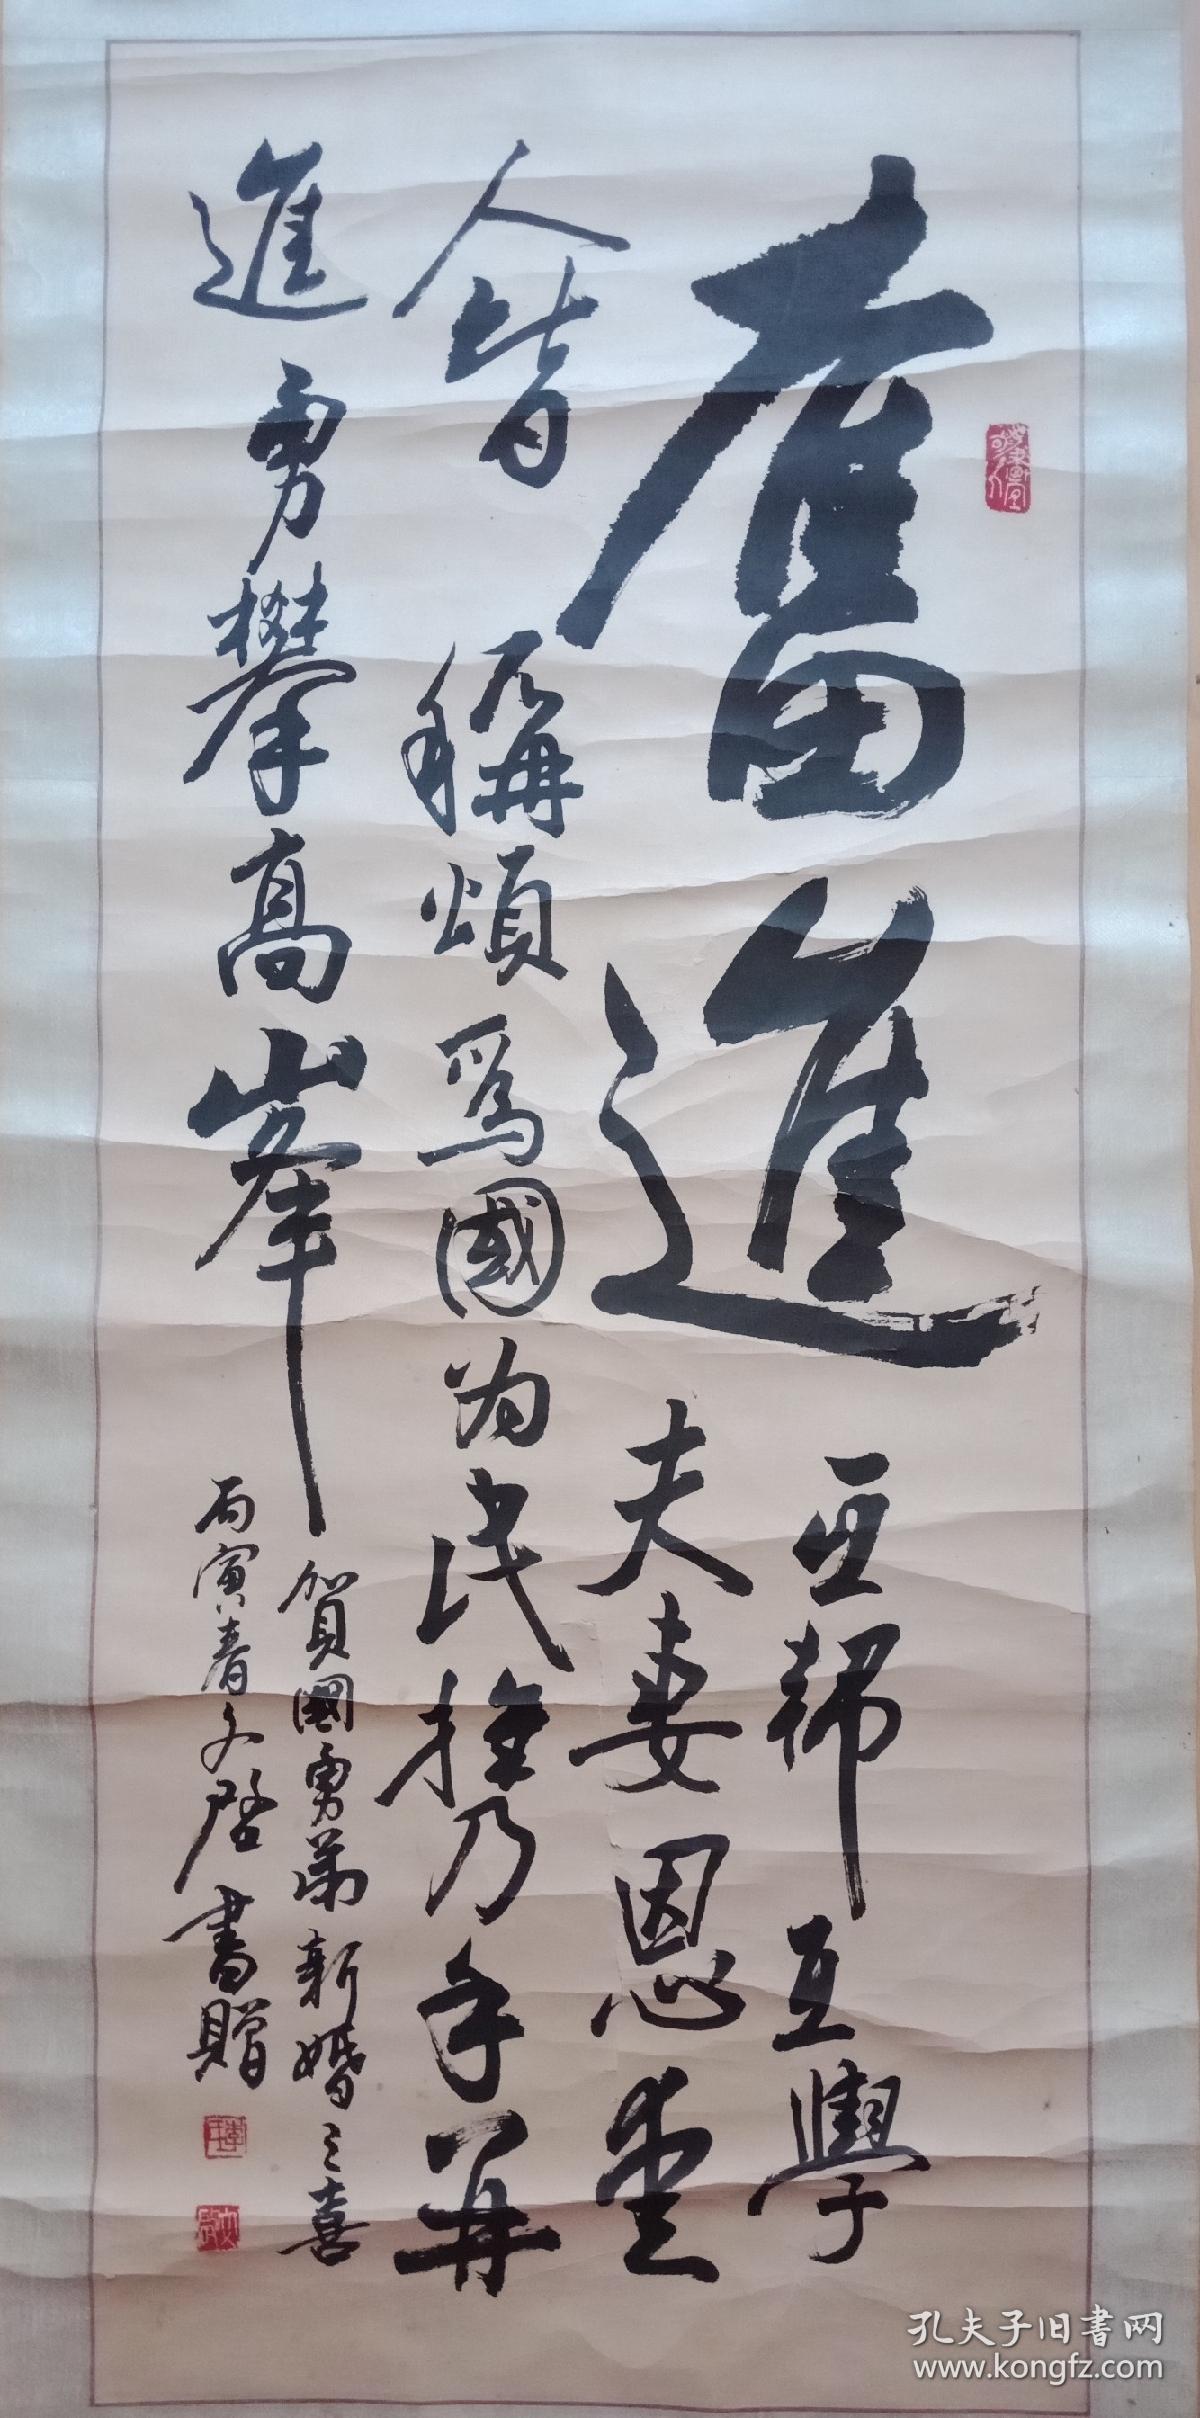 奮進
互帮互學
夫妻恩愛
人皆稱頌爲國为民携手并
進勇攀高峯
賀國勇弟新婚之喜
丙寅春文启書贈
孔夫子旧书网
www.kongfz.com